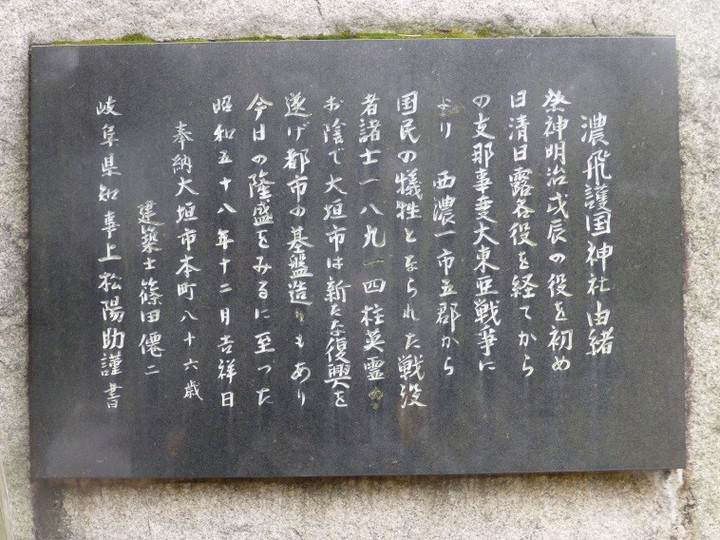 濃飛護国神社由緒
祭神明治戊辰の役を初め
日清日露各役を経てから
の支那事変大東亜戦争に
より 西濃一市五郡から
国民の犠牲となられた戦役
者諸士一八九一四柱英霊の
お陰で大垣市は新たな復興を
遂げ都市の基盤造りもあり
今日の隆盛をみるに至った
昭和五十八年十二月吉祥日
奉納大垣市本町八十六歳
建築士篠田僊二
岐阜県知事上松陽助謹書